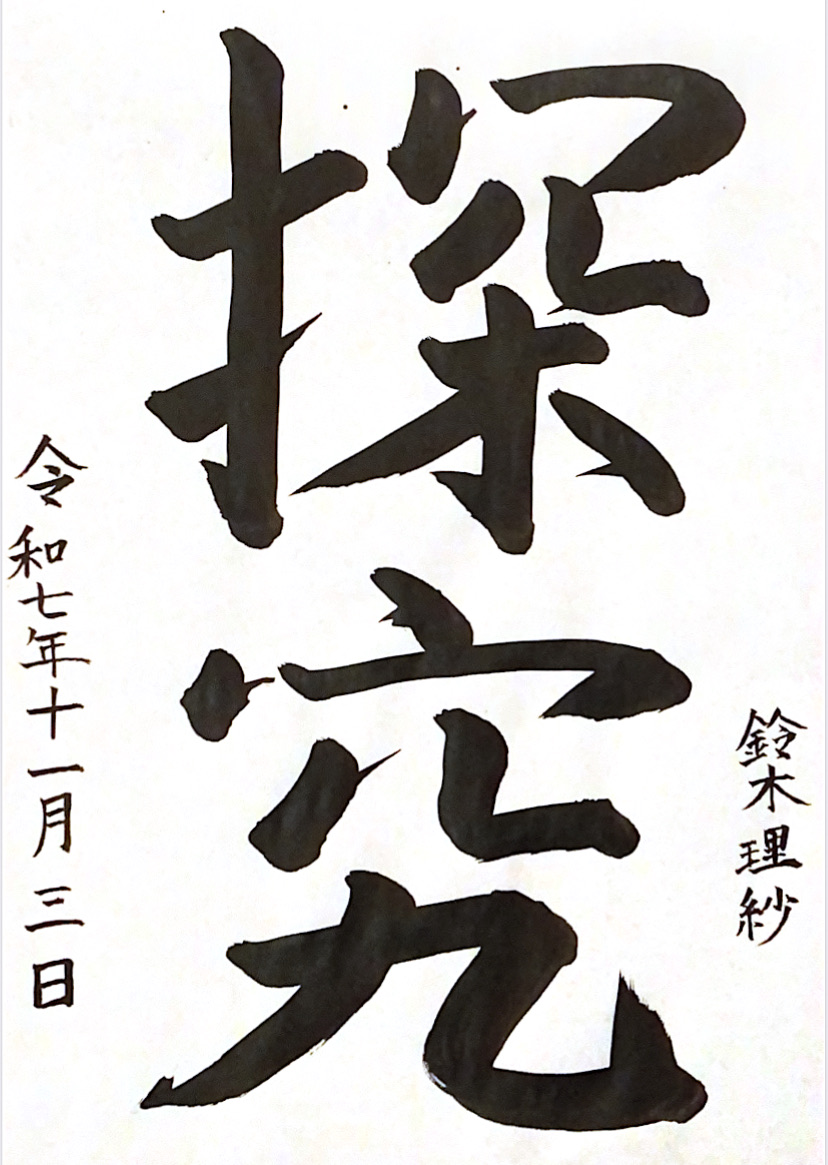 探究
鈴木理紗
令和七年十一月三日